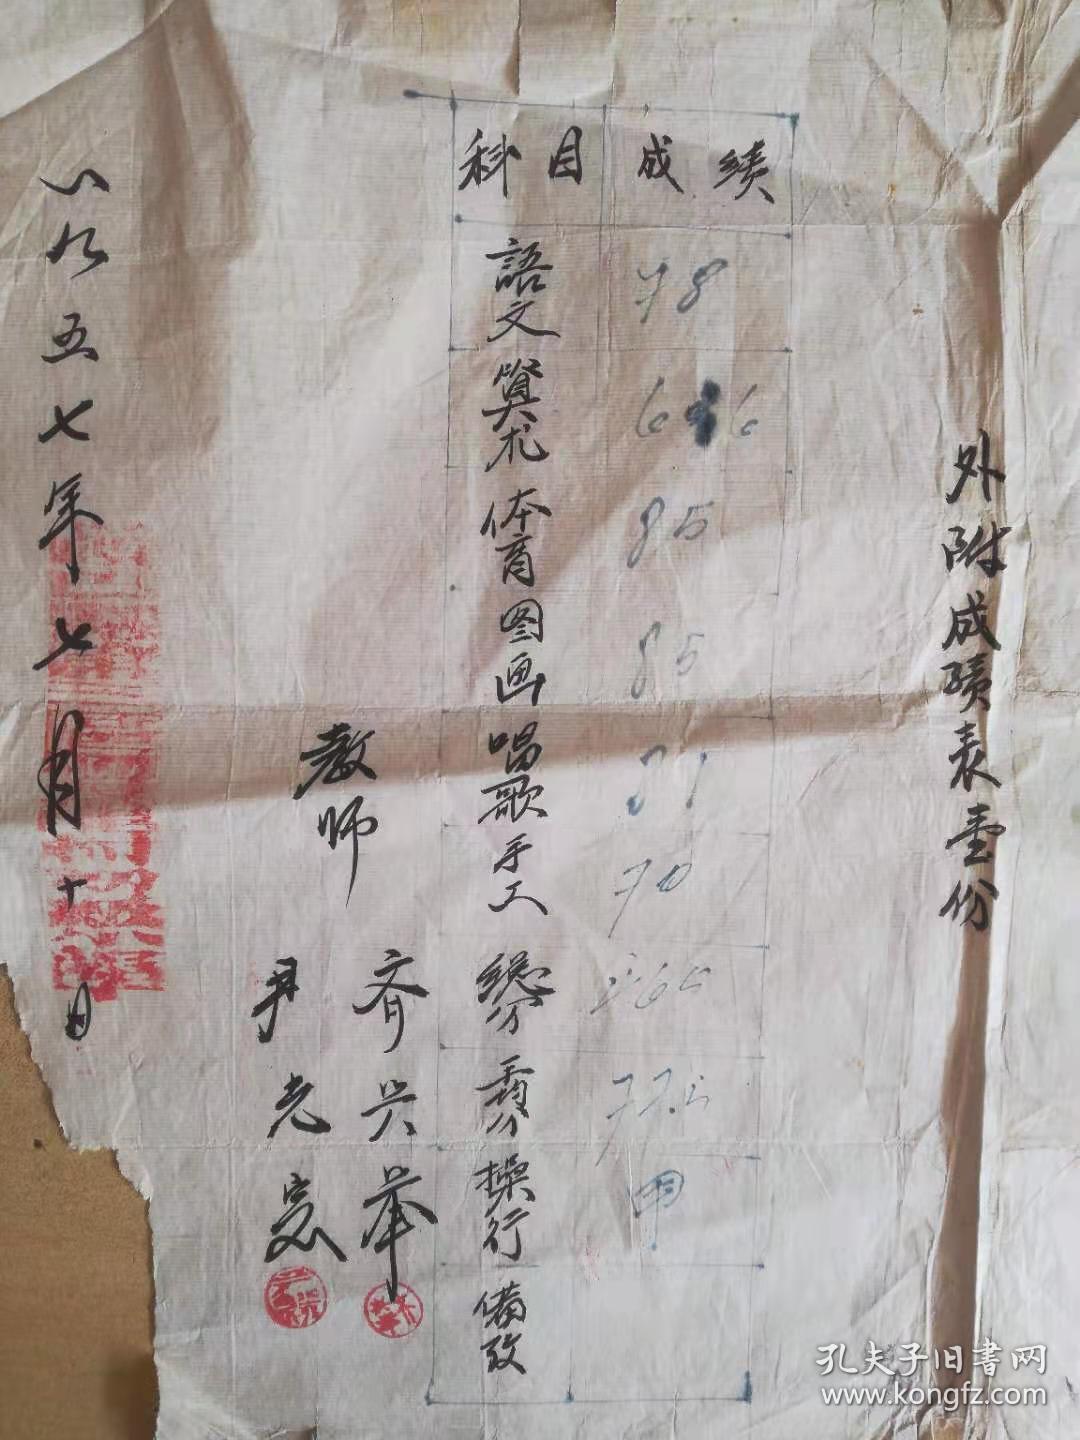 外附成績表壹份
科目 成績
語文 78
算术 66
体育 85
图画 85
唱歌 81
手工 70
總分 465
平均分 77.5
操行 甲
備考
教师
齐兴举
尹克宽
一九五七年七月十日
孔夫子旧書网
www.kongfz.com